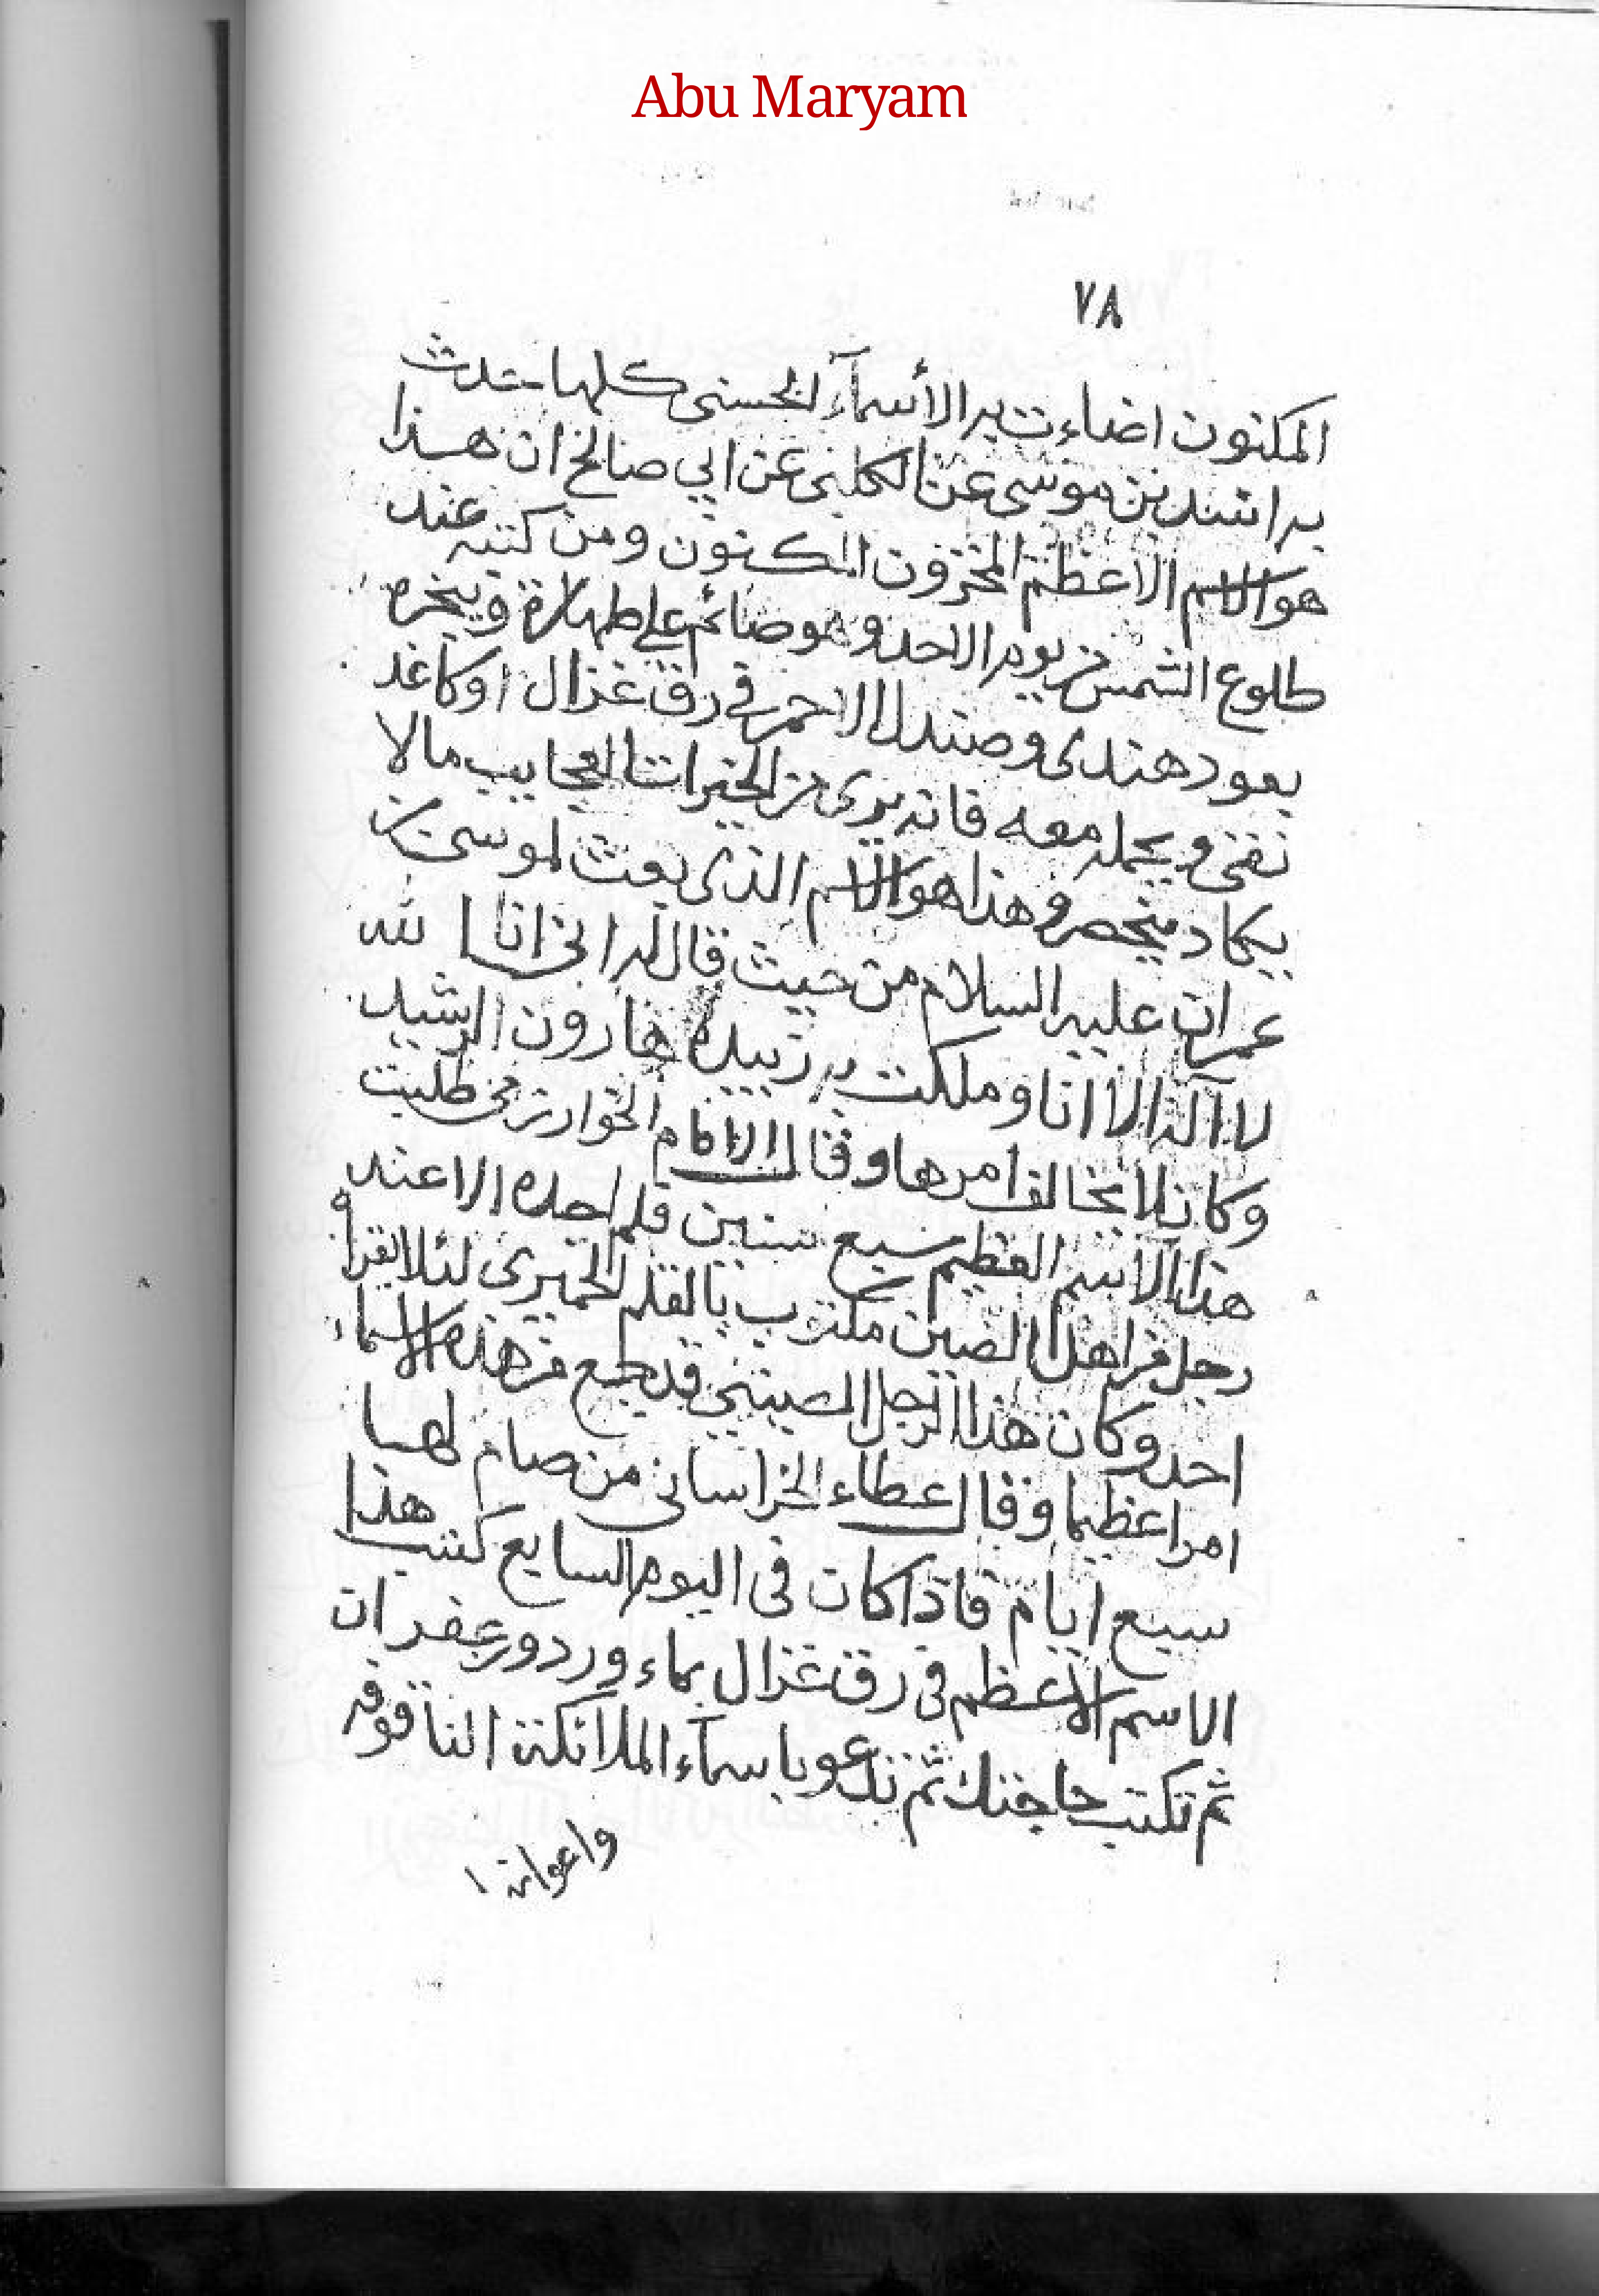 Abu Maryam
٧٨
المكنون اضاءت به الأسمآء الحسنى كلها حدث
به اسد بن موسى عن الكلبى عن ابي صالح ان هذا
هو الاسم الاعظم المخزون المكنون ومن كتبه عند
طلوع الشمس من يوم الاحد وهو صائم على طهارة وبخره
بعود هندى وصندل الاحمر في رق غزال او كاغد
نقى ويحمله معه فانه يرى من الخيرات العجايب مالا
يكاد ينحصر وهذا هو الاسم الذى بعث لموسى بن
عمران عليه السلام من حيث قال له انى انا الله
لا اله الا انا وملكت به زبيدة هارون الرشيد
وكان لا يخالف امرها وقال الامام الخوارزمى طلبت
هذا الاسم العظيم سبع سنين فلم اجده الا عند
رجل من اهل الصين مكتوب بالقلم الحميرى لئلا يقراه
احد وكان هذا الرجل الصينى قد جمع من هذه الاسماء
امرا عظيما وقال عطاء الخراسانى من صام لها
سبع ايام فاذا كان فى اليوم السابع كتب هذا
الاسم الاعظم فى رق غزال بماء ورد وزعفران
ثم تكتب حاجتك ثم تدعو باسمآء الملائكة النافوفه
واعوانه ا